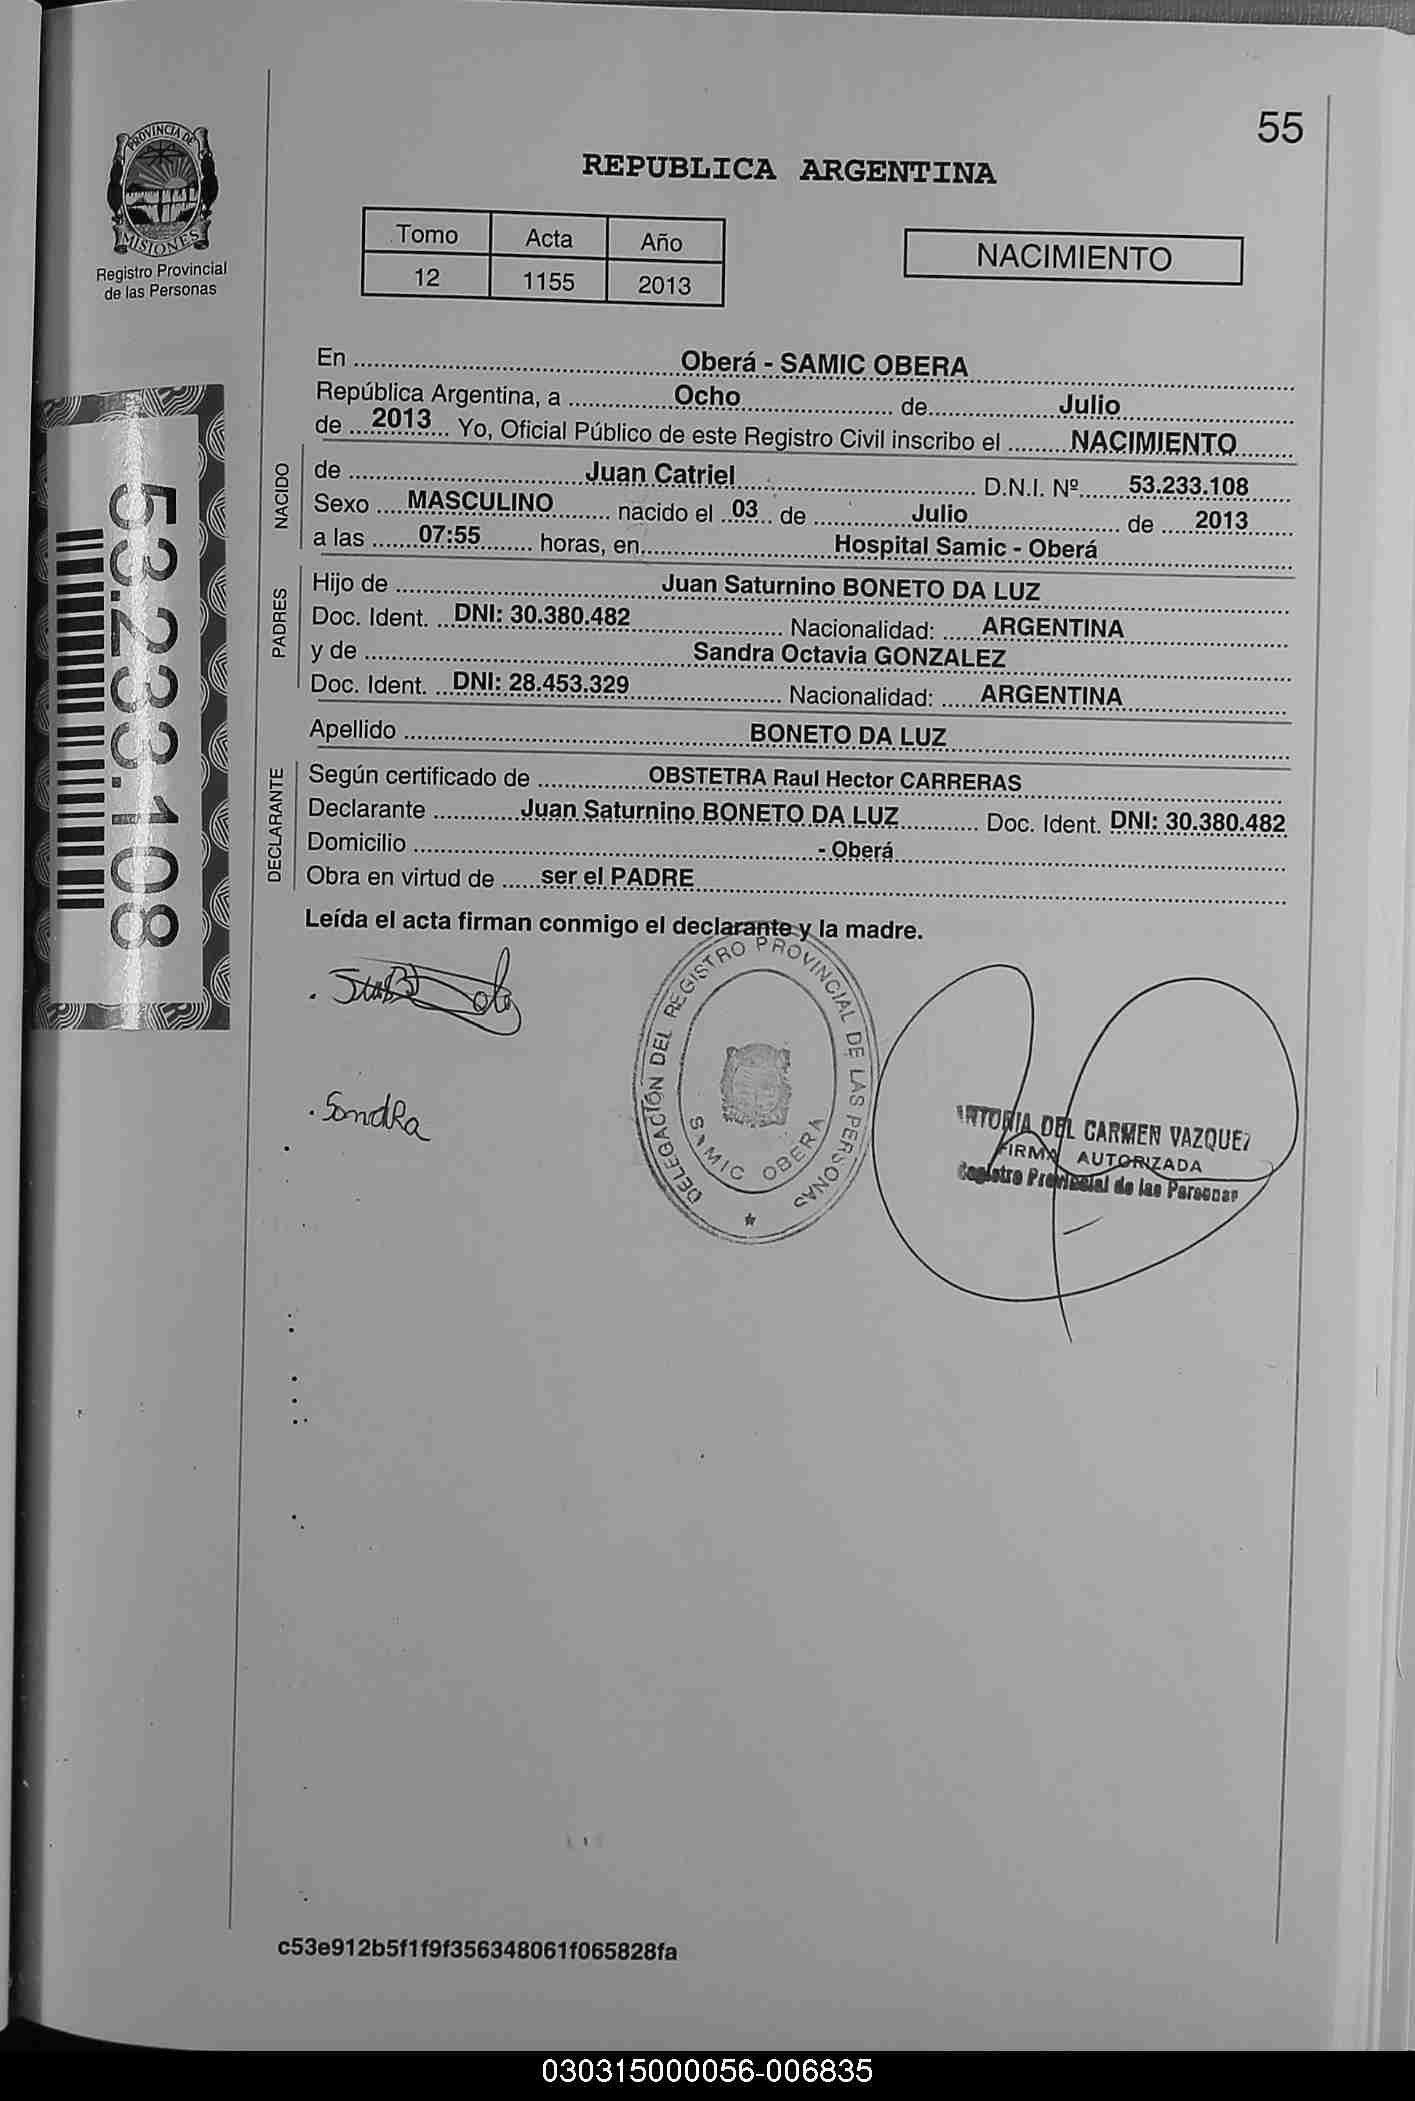 55
PROVINCIA DE
MISIONES
Registro Provincial
de las Personas
REPUBLICA ARGENTINA
Tomo Acta Año
12 1155 2013
NACIMIENTO
53.233.108
En Oberá - SAMIC OBERA
República Argentina, a Ocho de Julio
de 2013 Yo, Oficial Público de este Registro Civil inscribo el NACIMIENTO
NACIDO
de Juan Catriel D.N.I. Nº 53.233.108
Sexo MASCULINO nacido el 03 de Julio de 2013
a las 07:55 horas, en Hospital Samic - Oberá
PADRES
Hijo de Juan Saturnino BONETO DA LUZ
Doc. Ident. DNI: 30.380.482 Nacionalidad: ARGENTINA
y de Sandra Octavia GONZALEZ
Doc. Ident. DNI: 28.453.329 Nacionalidad: ARGENTINA
Apellido BONETO DA LUZ
DECLARANTE
Según certificado de OBSTETRA Raul Hector CARRERAS
Declarante Juan Saturnino BONETO DA LUZ Doc. Ident. DNI: 30.380.482
Domicilio - Oberá
Obra en virtud de ser el PADRE
Leída el acta firman conmigo el declarante y la madre.
DELEGACIÓN DEL REGISTRO PROVINCIAL DE LAS PERSONAS
SAMIC OBERA
Sandra
DEL CARMEN VAZQUEZ
FIRMA AUTORIZADA
Registro Provincial de las Personas
c53e912b5f1f9f356348061f065828fa
030315000056-006835